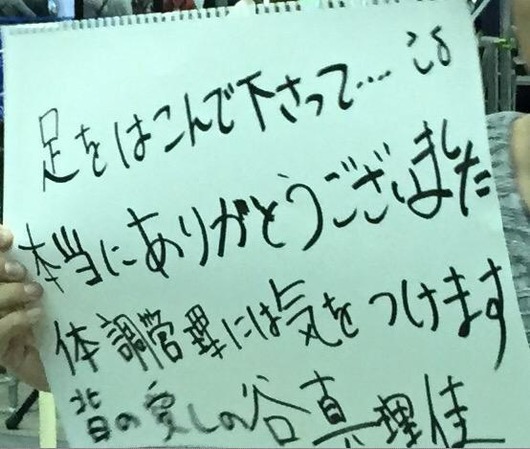 足をはこんで下さって....
本当にありがとうございました
体調管理には気をつけます
皆の愛しの谷真理佳